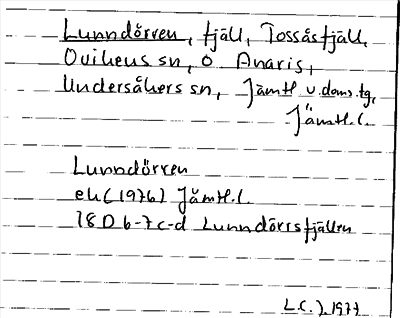 Lunndörren, fjäll, Tossåsfjäll,
Ovikens sn, o Anaris,
Undersåkers sn, Jämtl v. doms. tg,
Jämtl. l.
Lunndörren
ek (1976) Jämtl. l.
18D 6-7 c-d Lunndörrsfjällen
L. C. ), 1977